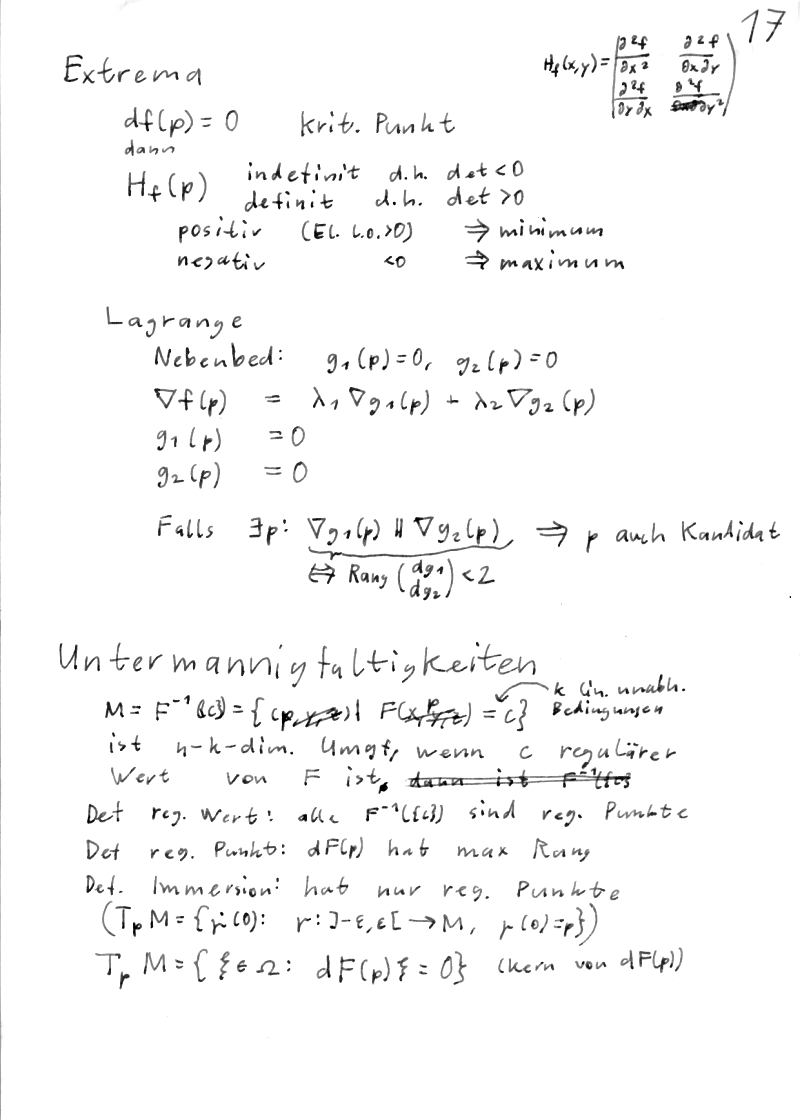 17
H_f(x,y) = ( ∂²f/∂x² ∂²f/∂x∂y
∂²f/∂y∂x ∂²f/∂y² )
Extrema
df(p) = 0 krit. Punkt
dann
H_f(p) indefinit d.h. det < 0
definit d.h. det > 0
positiv (El. l.o. >0) ⇒ minimum
negativ <0 ⇒ maximum
Lagrange
Nebenbed: g₁(p)=0, g₂(p)=0
∇f(p) = λ₁∇g₁(p) + λ₂∇g₂(p)
g₁(p) = 0
g₂(p) = 0
Falls ∃p: ∇g₁(p) ∥ ∇g₂(p) ⇒ p auch Kandidat
⇔ Rang (dg₁ dg₂) < 2
Untermannigfaltigkeiten
k lin. unabh.
M = F⁻¹({c}) = {p | F(p) = c} Bedingungen
ist n-k-dim. Umgf, wenn c regulärer
Wert von F ist. dann ist F⁻¹({c}
Def reg. Wert: alle F⁻¹({c}) sind reg. Punkte
Def reg. Punkt: dF(p) hat max Rang
Def. Immersion: hat nur reg. Punkte
(T_p M = {γ̇(0): γ: ]-ε,ε[ → M, γ(0)=p})
T_p M = {ξ ∈ Ω: dF(p)ξ = 0} (Kern von dF(p))